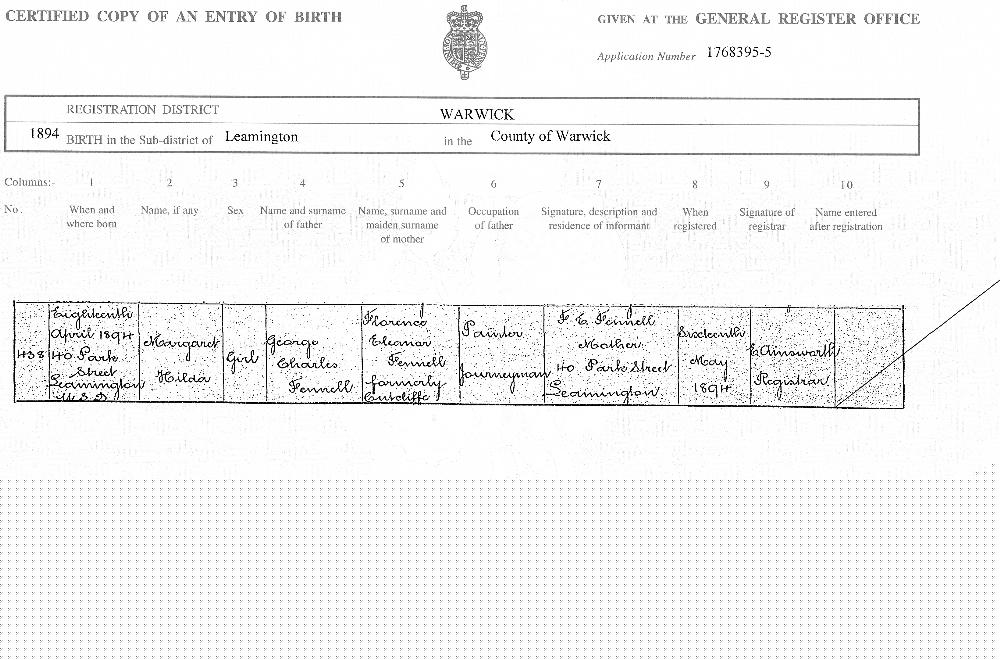 CERTIFIED COPY OF AN ENTRY OF BIRTH
GIVEN AT THE GENERAL REGISTER OFFICE
Application Number 1768395-5
REGISTRATION DISTRICT WARWICK
1894 BIRTH in the Sub-district of Leamington in the County of Warwick
Columns:- 1 2 3 4 5 6 7 8 9 10
No. When and where born Name, if any Sex Name and surname of father Name, surname and maiden surname of mother Occupation of father Signature, description and residence of informant When registered Signature of registrar Name entered after registration
438
Eighteenth
April 1894
40 Park
Street
Leamington
U.S.D
Margaret
Hilda
Girl
George
Charles
Fennell
Florence
Eleanor
Fennell
formerly
Cutcliffe
Painter
Journeyman
F. E. Fennell
Mother
40 Park Street
Leamington
Sixteenth
May
1894
E Ainsworth
Registrar